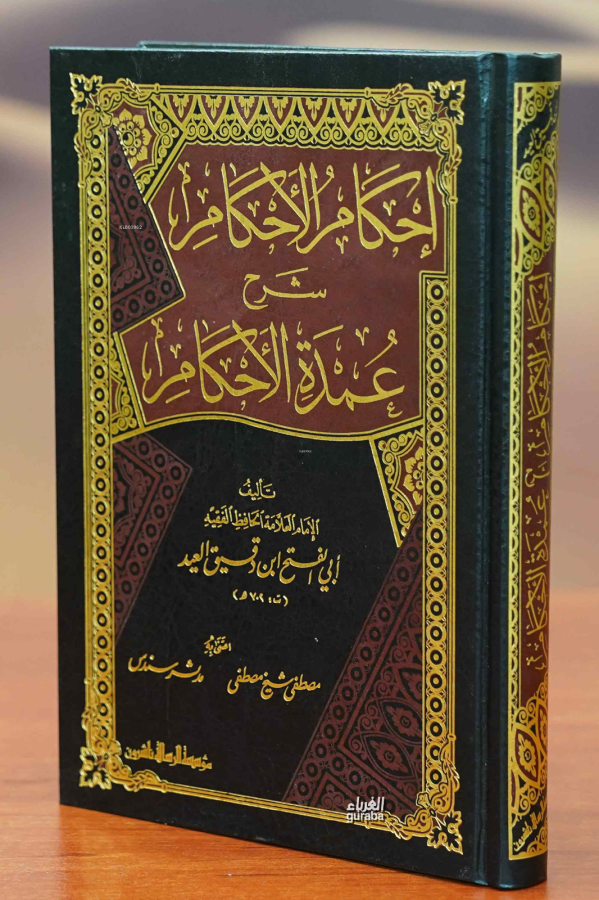 إِحْكَامُ الأَحْكَامِ
شَرْح
عُمْدَةِ الأَحْكَامِ
تَأليفُ
الإمَام العَلَّامَة الحَافِظ الفَقِيه
أبي الفتح ابن دقيق العيد
(ت: ٧٠٢ هـ)
اعتَنى بِهُ
مصطفى شيخ مصطفى
مدثر سندس
مؤسسة الرسالة ناشرون
إحكام الأحكام شرح عمدة الأحكام
الغرباء
guraba